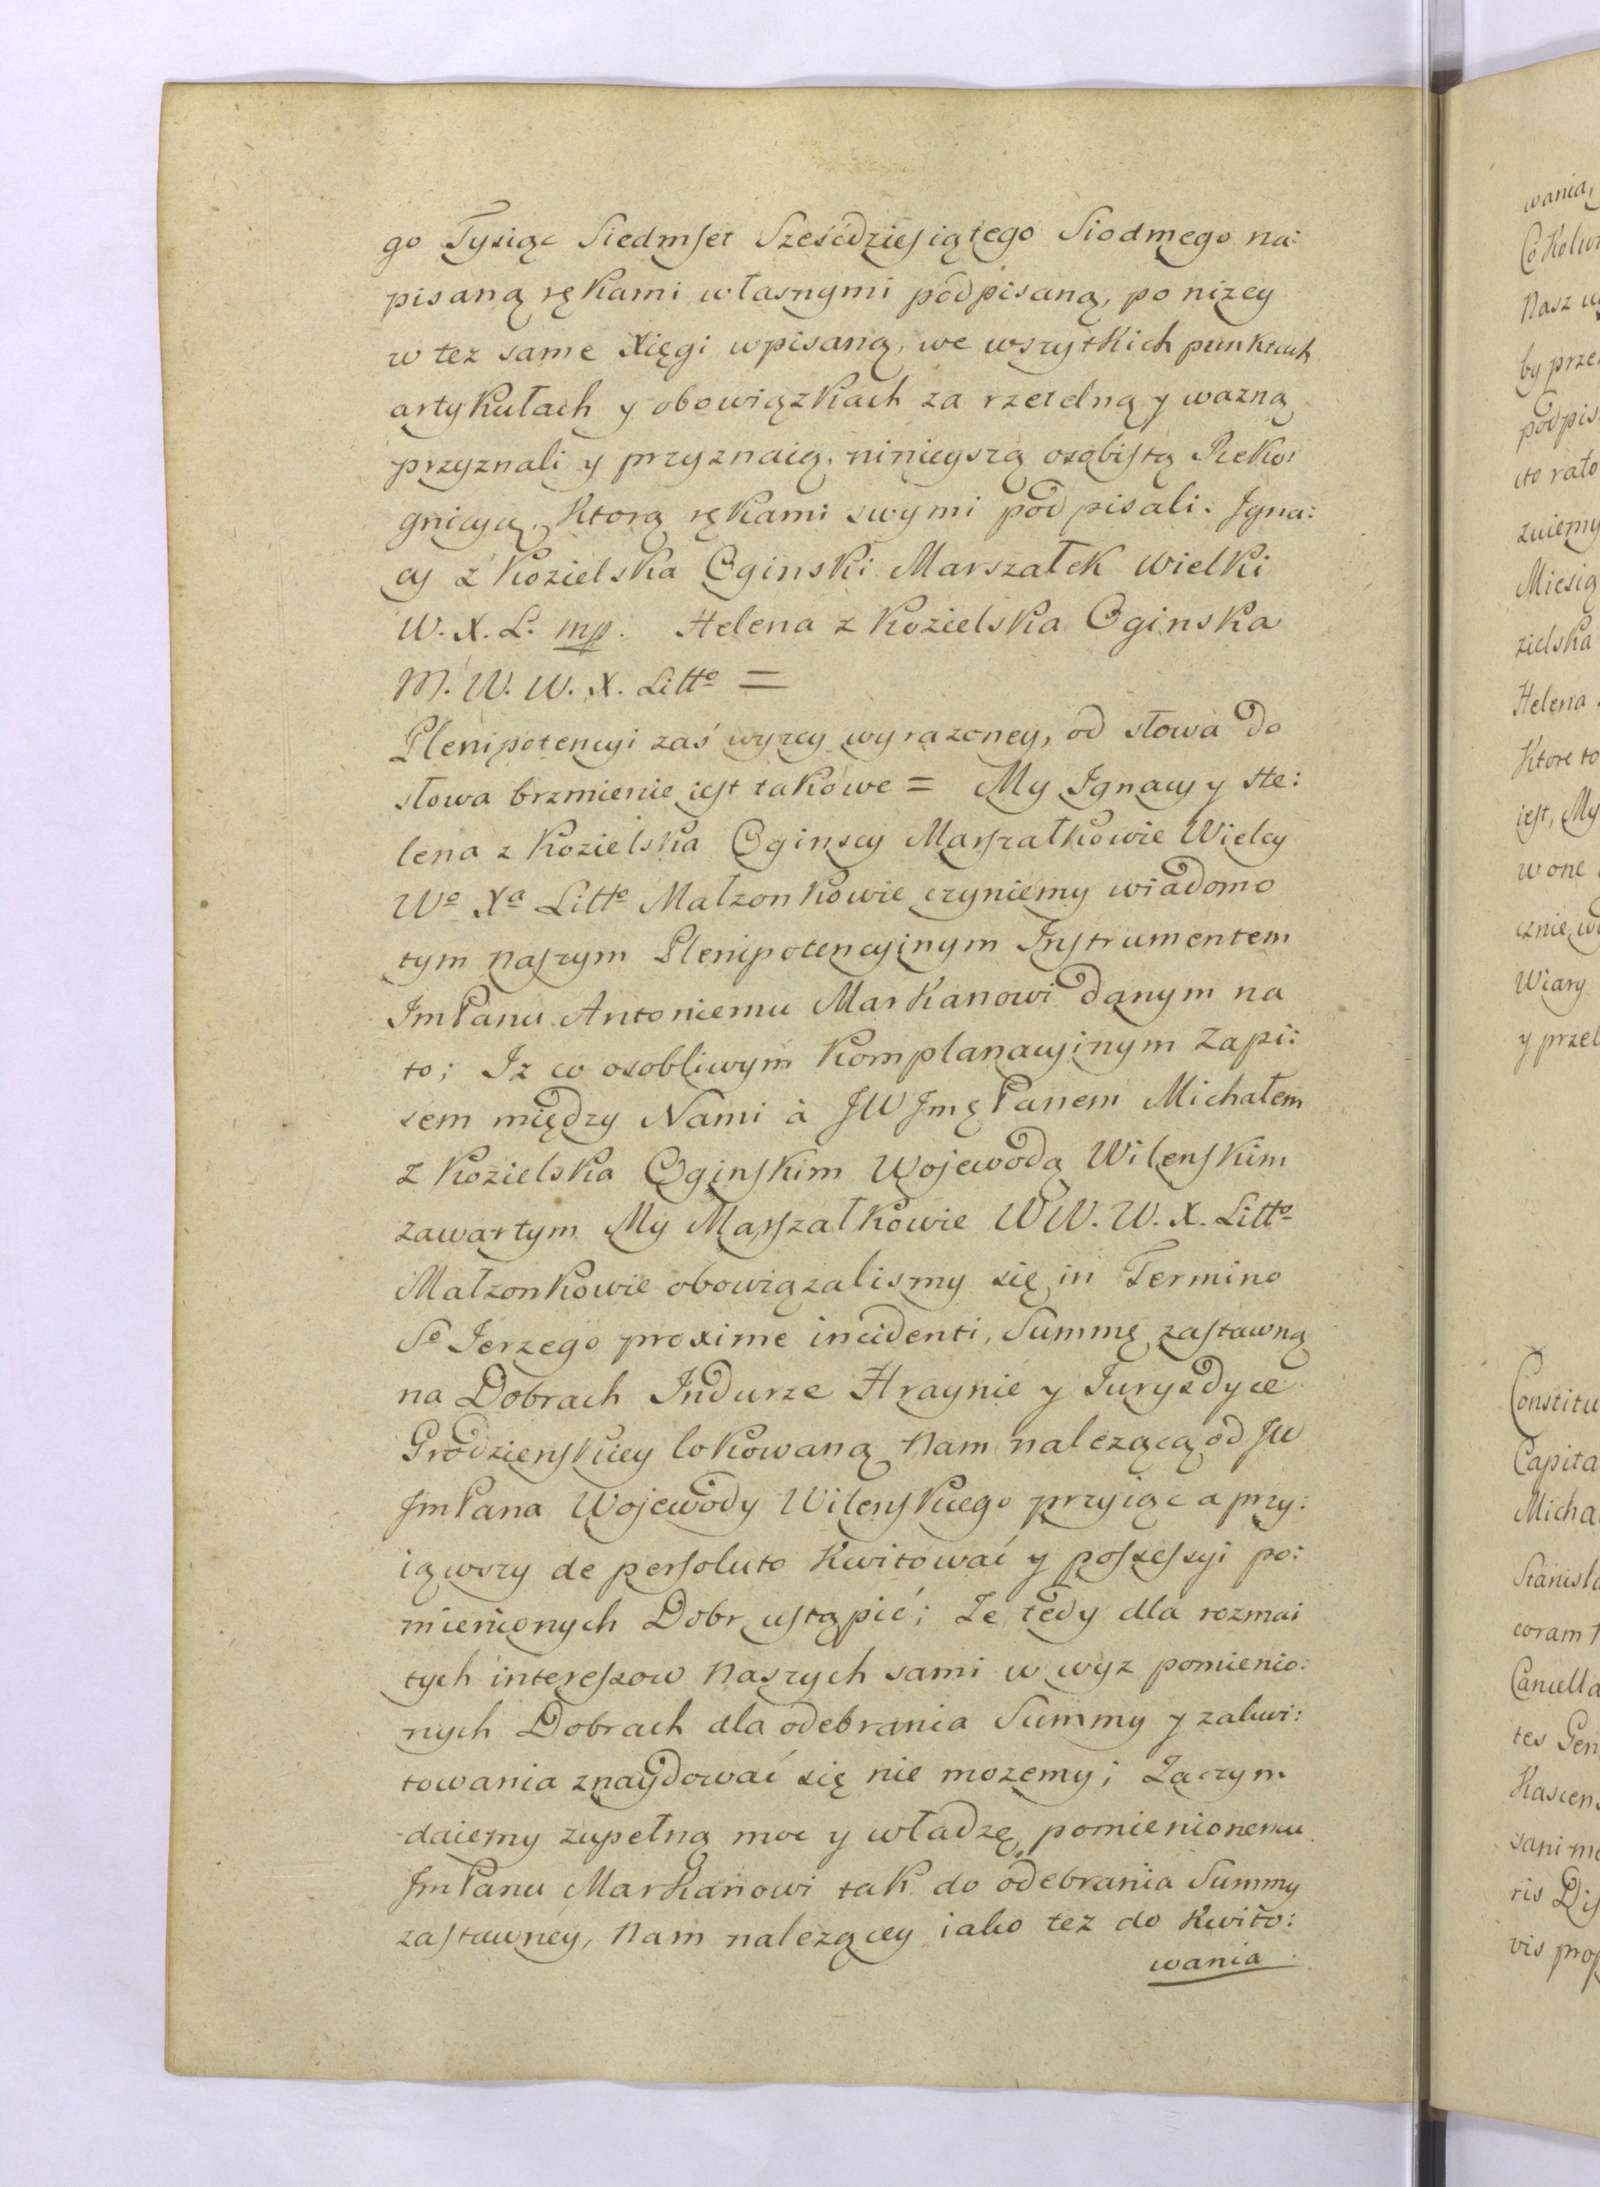 go Tysiąc Siedmset Sześćdziesiątego Siodmego na:
pisaną rękami własnymi podpisaną, po niżey
w też same Xięgi wpisaną, we wszytkich punktach
artykułach y obowiązkach za rzetelną y wazną
przyznali y przyznaią, ninieyszą osobistą Reko:
gnicyą, Ktorą rękami swymi podpisali. Igna:
cy z Kozielska Oginski Marszałek Wielki
W. X. L. mp. Helena z Kozielska Oginska
M. W. W. X. Litto =
Plenipotencyi zaś wyzey wyrazoney, od słowa do
słowa brzmienie iest takowe = My Ignacy y He:
lena z Kozielska Oginscy Marszałkowie Wielcy
Wo Xa Litto Małzonkowie czyniemy wiadomo
tym naszym Plenipotencyjnym Instrumentem
ImPanu Antoniemu Markanowi danym na
to; Iz co osobliwym Komplanacyjnym Zapi:
sem między Nami à JW Jmę Panem Michałem
z Kozielska Oginskim Wojewodą Wilenskim
zawartym My Marszałkowie WW. W. X. Litto
Małzonkowie obowiązalismy się in Termino
So Jerzego proxime incidenti, Summę zastawną
na Dobrach Indurze Hraynie y Jurysdyce
Grodzienskiey lokowaną Nam nalezącą od JW
JmPana Wojewody Wilenskiego przyiąc a przy:
iąwszy de persoluto Kwitować y possessyi po:
mienionych Dobr ustąpić; Ze tedy dla rozmai
tych interessow Naszych sami w wyz pomienio:
nych Dobrach dla odebrania Summy y zakwi:
towania znaydować się nie mozemy; Zaczym
daiemy zupełną moc y władzę pomienionemu
JmPanu Markanowi tak do odebrania Summy
zastawney, Nam nalezącey iako tez do Kwito:
wania
wania,
Nasz
by prze
podpis
cto rato
zniemy
Miesią
zielska
Helena
Ktore to
iest, My
w one
cznie w
Wiary
y przet
Constitu
Capita
Micha
Stanisla
coram
Cancella
tes Gen
Kascens
ris Dis
vis prop